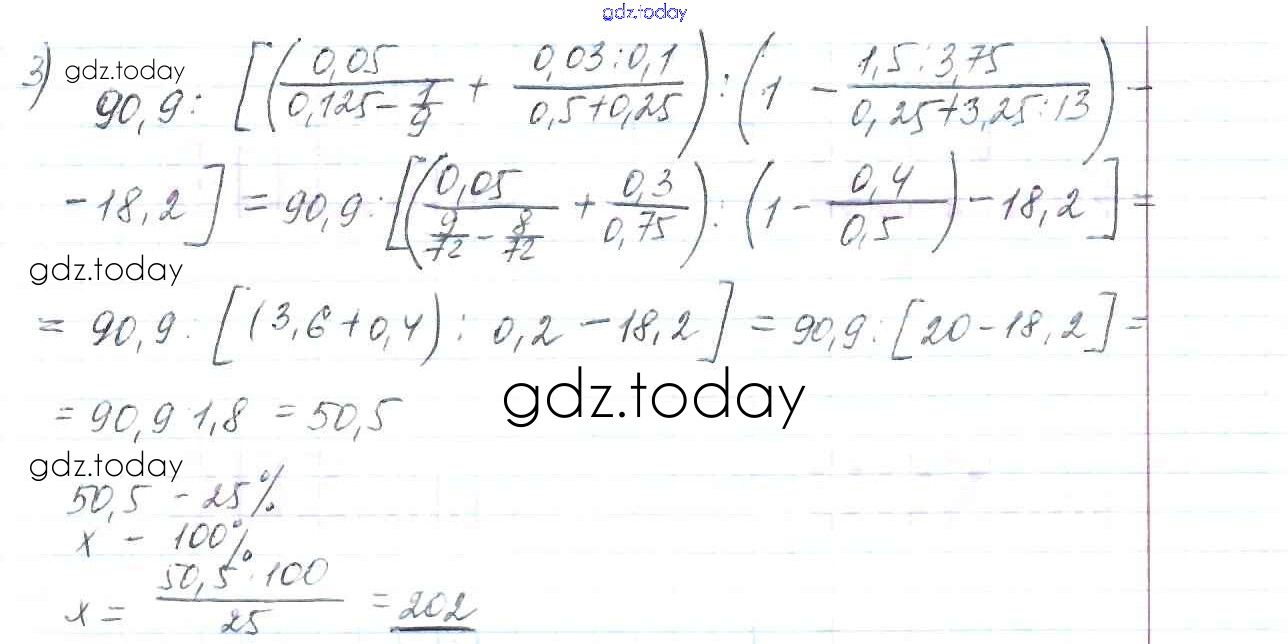 gdz.today
3) gdz.today
90,9 : [(0,05/(0,125 - 1/9) + (0,03:0,1)/(0,5+0,25)) : (1 - (1,5:3,75)/(0,25+3,25:13)) -
- 18,2] = 90,9 : [(0,05/(9/72 - 8/72) + 0,3/0,75) : (1 - 0,4/0,5) - 18,2] =
gdz.today
= 90,9 : [(3,6 + 0,4) : 0,2 - 18,2] = 90,9 : [20 - 18,2] =
gdz.today
= 90,9 1,8 = 50,5
gdz.today
50,5 - 25%
x - 100%
x = 50,5·100/25 = 202